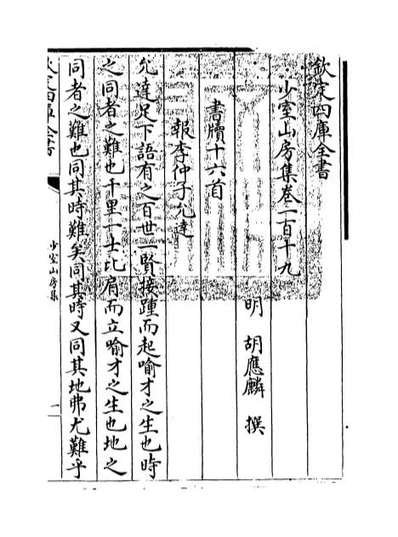 欽定四庫全書
少室山房集卷一百十九
明 胡應麟 撰
書牘十六首
報李仲子允達
允達足下語有之百世一賢接踵而起喻才之生也時
之同者之難也千里一士比肩而立喻才之生也地之
同者之難也同其時難矣同其地又同其時弗尤難乎
欽定四庫全書
少室山房集
一